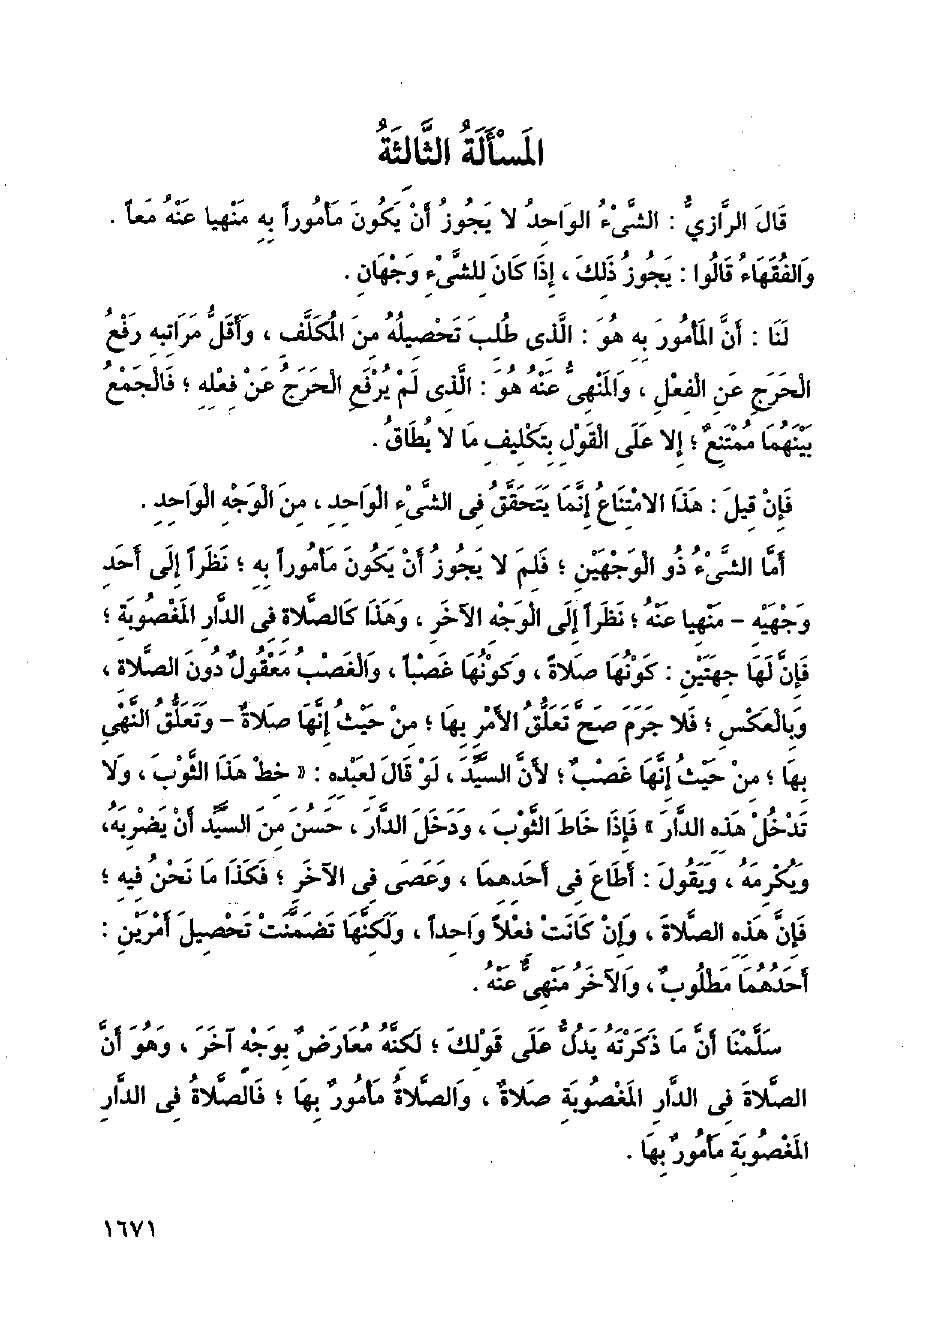 المَسْأَلَةُ الثَّالِثَةُ
قَالَ الرَّازِيُّ : الشَّىْءُ الوَاحِدُ لا يَجُوزُ أَنْ يَكُونَ مَأمُوراً بِهِ مَنْهِيا عَنْهُ مَعاً .
وَالفُقَهَاءُ قَالُوا : يَجُوزُ ذَلِكَ ، إِذَا كَانَ لِلشَّىْءِ وَجْهَانِ .
لَنَا : أَنَّ المَأمُورَ بِهِ هُوَ : الَّذِى طُلِبَ تَحْصِيلُهُ مِنَ المُكَلَّفِ ، وَأَقَلُّ مَرَاتِبِهِ رَفْعُ
الْحَرَجِ عَنِ الْفِعْلِ ، وَالمَنْهِىُّ عَنْهُ هُوَ : الَّذِى لَمْ يُرْفَعِ الْحَرَجُ عَنْ فِعْلِهِ ؛ فَالْجَمْعُ
بَيْنَهُمَا مُمْتَنِعٌ ؛ إِلا عَلَى القَوْلِ بِتَكْلِيفِ مَا لا يُطَاقُ .
فَإِنْ قِيلَ : هَذَا الامْتِنَاعُ إِنَّمَا يَتَحَقَّقُ فِى الشَّىْءِ الوَاحِدِ ، مِنَ الْوَجْهِ الْوَاحِدِ .
أَمَّا الشَّىْءُ ذُو الوَجْهَيْنِ ؛ فَلِمَ لا يَجُوزُ أَنْ يَكُونَ مَأمُوراً بِهِ ؛ نَظَراً إِلَى أَحَدِ
وَجْهَيْهِ – مَنْهِيا عَنْهُ ؛ نَظَراً إِلَى الْوَجْهِ الآخَرِ ، وَهَذَا كَالصَّلاةِ فِى الدَّارِ المَغْصُوبَةِ ؛
فَإِنَّ لَهَا جِهَتَيْنِ : كَوْنُهَا صَلاةً ، وَكَوْنُهَا غَصْباً ، وَالغَصْبُ مَعْقُولٌ دُونَ الصَّلاةِ ،
وَبِالْعَكْسِ ؛ فَلا جَرَمَ صَحَّ تَعَلُّقُ الأَمْرِ بِهَا ؛ مِنْ حَيْثُ إِنَّهَا صَلاةٌ – وَتَعَلُّقُ النَّهْىِ
بِهَا ؛ مِنْ حَيْثُ إِنَّهَا غَصْبٌ ؛ لأَنَّ السَّيِّدَ ، لَوْ قَالَ لِعَبْدِهِ : « خِطْ هَذَا الثَّوْبَ ، وَلا
تَدْخُلْ هَذِهِ الدَّارَ » فَإِذَا خَاطَ الثَّوْبَ ، وَدَخَلَ الدَّارَ ، حَسُنَ مِنَ السَّيِّدِ أَنْ يَضْرِبَهُ،
وَيُكْرِمَهُ ، وَيَقُولَ : أَطَاعَ فِى أَحَدِهِمَا ، وَعَصَى فِى الآخَرِ ؛ فَكَذَا مَا نَحْنُ فِيهِ ؛
فَإِنَّ هَذِهِ الصَّلاةَ ، وَإِنْ كَانَتْ فِعْلاً وَاحِداً ، وَلَكِنَّهَا تَضَمَّنَتْ تَحْصِيلَ أَمْرَيْنِ :
أَحَدُهُمَا مَطْلُوبٌ ، وَالآخَرُ مَنْهِىٌّ عَنْهُ .
سَلَّمْنَا أَنَّ مَا ذَكَرْتَهُ يَدُلُّ عَلَى قَوْلِكَ ؛ لَكِنَّهُ مُعَارَضٌ بِوَجْهٍ آخَرَ ، وَهُوَ أَنَّ
الصَّلاةَ فِى الدَّارِ المَغْصُوبَةِ صَلاةٌ ، وَالصَّلاةُ مَأمُورٌ بِهَا ؛ فَالصَّلاةُ فِى الدَّارِ
المَغْصُوبَةِ مَأمُورٌ بِهَا .
١٦٧١